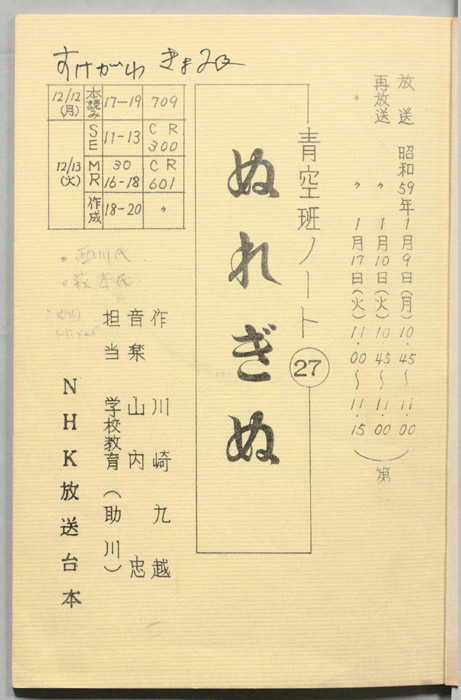 すけがわ きよみ
放送 昭和59年1月9日(月)10.45〜11.00
再放送 〃 1月10日(火)10.45〜11.00
〃 〃 1月17日(火)11.00〜11.15
(第
―青空班ノート―㉗
ぬれぎぬ
作 川崎九越
音楽 山内忠
担当 学校教育(助川)
NHK放送台本
12/12(月) 本読み 17-19 709
SE 11-13 CR 300
12/13(火) MR 30 16-18 CR 601
作成 18-20 〃
西川氏